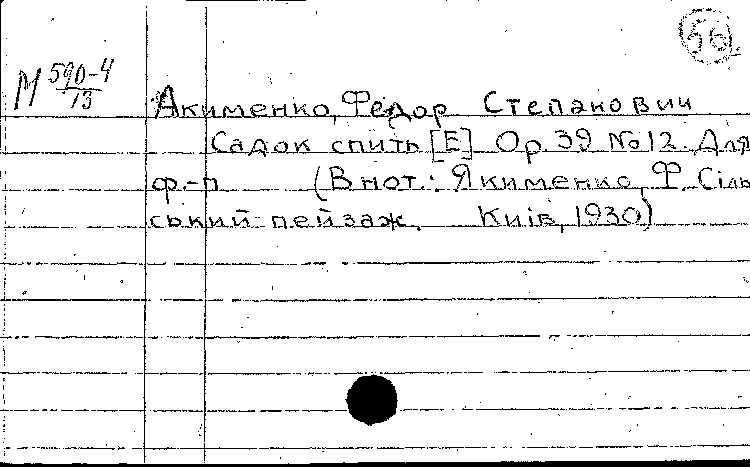 56.
М 590-4/13
Акименко, Федор Степанович
Садок спить [E] Op. 39 No 12. Для
ф.-п. (В нот.: Якименко, Ф. Сіль
ський пейзаж. Київ, 1930)